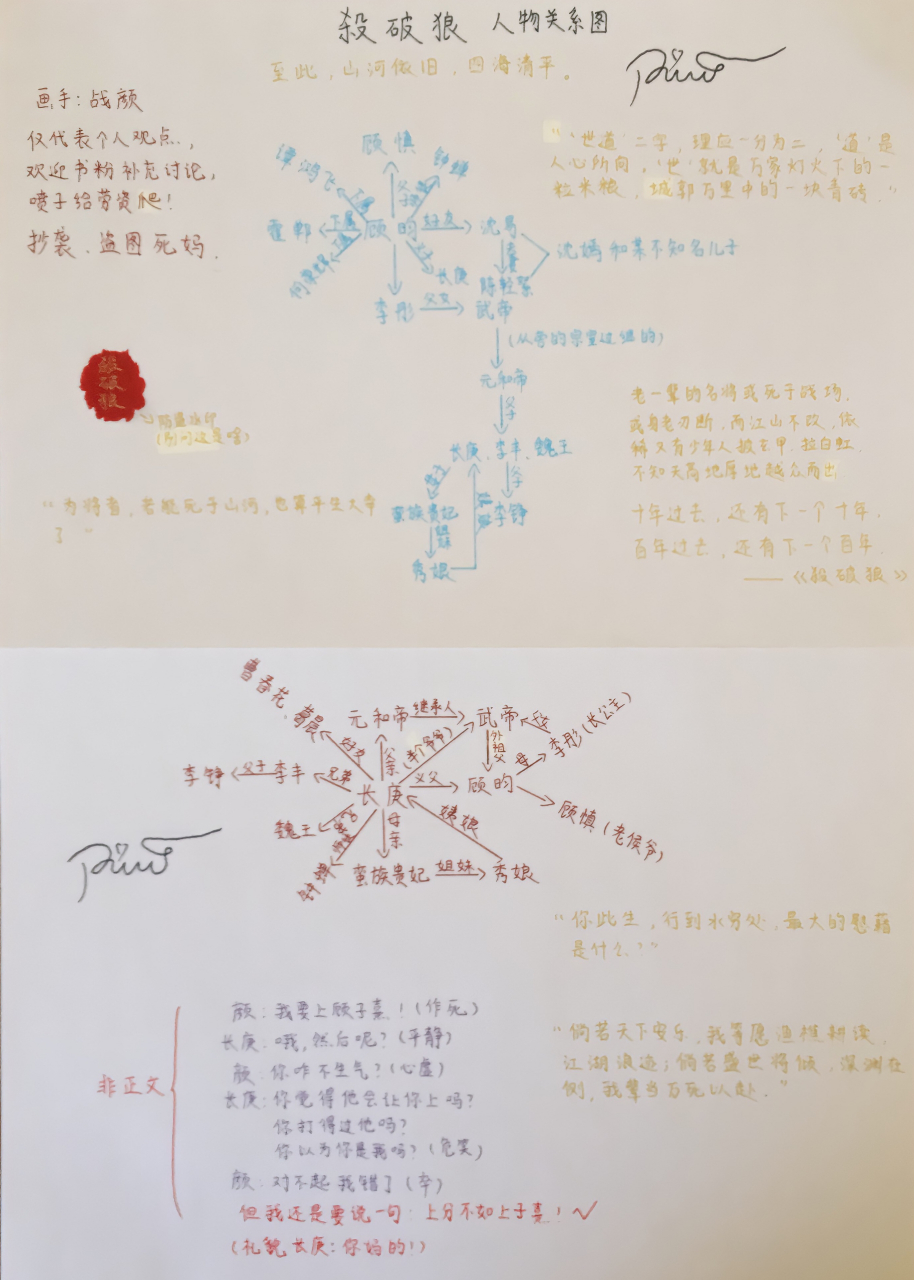 殺破狼 人物关系图
至此,山河依旧,四海清平。
画手:战颜
仅代表个人观点,
欢迎书粉补充讨论,
喷子给劳资爬!
抄袭、盗图死妈.
"'世道'二字,理应一分为二,'道'是
人心所向,'世'就是万家灯火下的一
粒米粮,城郭万里中的一块青砖."
顾慎
谭鸿飞
钟蝉
父子
下属
霍郸
下属
顾昀
好友
沈易
夫妻
沈嫣和某不知名儿子
父子
长庚
陈轻絮
李彤
父女
武帝
(从旁的宗室过继的)
元和帝
父子
长庚、李丰、魏王
父子
李铮
蛮族贵妃
姐妹
秀娘
殺
破
狼
(别问这是啥)
老一辈的名将或死于战场,
或身老刀断,而江山不改,依
稀又有少年人披玄甲、拉白虹,
不知天高地厚地越众而出
十年过去,还有下一个十年.
百年过去,还有下一个百年.
——《殺破狼》
"为将者,若能死于山河,也算平生大幸
了"
曹春花、葛晨
元和帝
继承人
武帝
父女
李彤(长公主)
好友
父亲
(半个爷爷)
外祖父
母
李铮
父子
李丰
兄弟
长庚
义父
顾昀
顾慎(老侯爷)
魏王
母亲
姨娘
钟蝉
蛮族贵妃
姐妹
秀娘
"你此生,行到水穷处,最大的慰藉
是什么?"
非正文
颜:我要上顾子熹!(作死)
长庚:哦,然后呢?(平静)
颜:你咋不生气?(心虚)
长庚:你觉得他会让你上吗?
你打得过他吗?
你以为你是我吗?(危笑)
颜:对不起我错了(卒)
但我还是要说一句:上分不如上子熹!✓
(礼貌长庚:你妈的!)
"倘若天下安乐,我等愿渔樵耕读,
江湖浪迹;倘若盛世将倾,深渊在
侧,我辈当万死以赴."